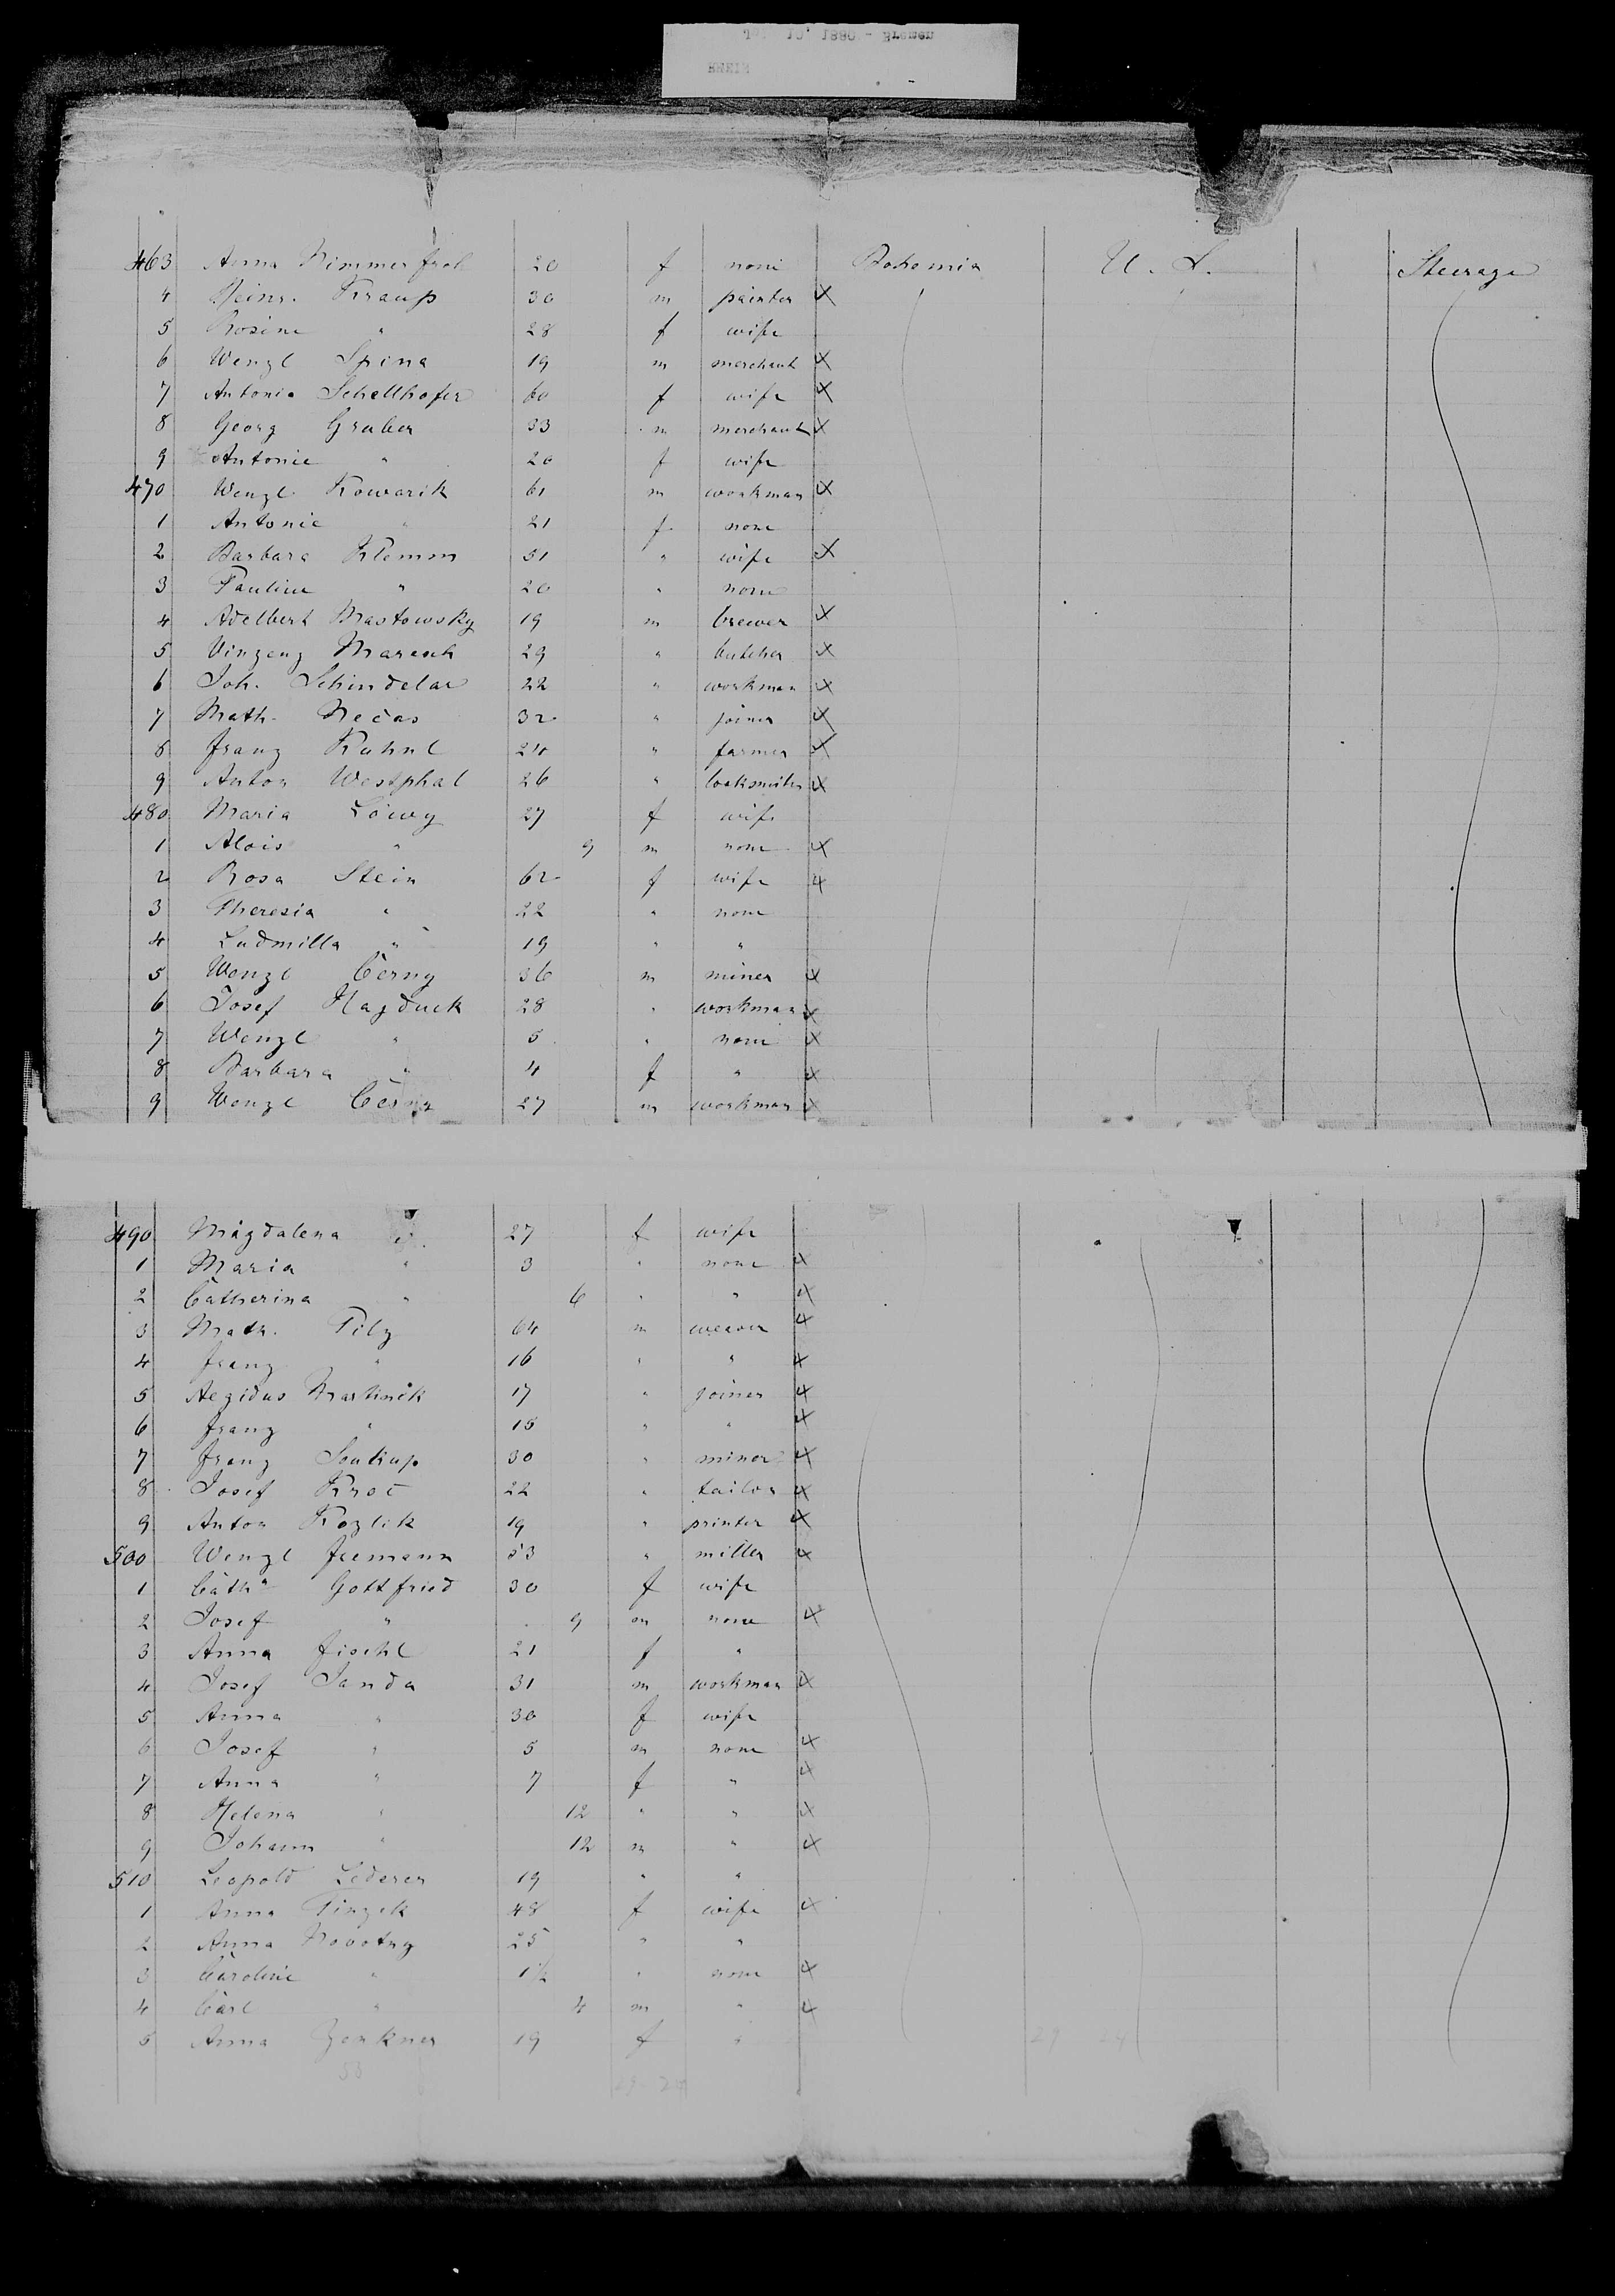 463 Anna Nimmerfroh 20 f none Bohemia U. S. Steerage
4 Heinr. Kraup 30 m painter x
5 Rosine " 28 f wife
6 Wenzl Spina 19 m merchant x
7 Antonia Schellhofer 60 f wife x
8 Georg Gruber 33 m merchant x
9 Antonie " 20 f wife
470 Wenzl Kowarik 61 m workman x
1 Antonie " 21 f none
2 Barbara Klemm 51 " wife x
3 Pauline " 20 " none
4 Adelbert Mastowsky 19 m brewer x
5 Vinzenz Mareck 29 " butcher x
6 Joh. Schindelar 22 " workman x
7 Math. Nečas 32 " joiner x
8 Franz Kuhnl 24 " farmer x
9 Anton Westphal 26 " locksmith x
480 Maria Löwy 27 f wife
1 Alois " 9 m none x
2 Rosa Stein 62 f wife x
3 Theresia " 22 " none
4 Ludmilla " 19 " "
5 Wenzl Černy 36 m miner x
6 Josef Hayduck 28 " workman x
7 Wenzl " 5 " none x
8 Barbara " 4 f " x
9 Wenzl 27 m workman x
490 Magdalena " 27 f wife
1 Maria " 3 " none x
2 Catherina " 6 " " x
3 Math. Pilz 64 m weaver x
4 Franz " 16 " " x
5 Aegidus Martinek 17 " joiner x
6 Franz " 15 " " x
7 Franz Soukup 30 " miner x
8 Josef Kroč 22 " tailor x
9 Anton Kozlik 19 " printer x
500 Wenzl Jeemann 53 " miller x
1 Cath.a Gottfried 30 f wife
2 Josef " 9 m none x
3 Anna Fischl 21 f "
4 Josef Janda 31 m workman x
5 Anna " 30 f wife
6 Josef " 5 m none x
7 Anna " 7 f " x
8 Helena " 12 " " x
9 Johann " 12 m " x
510 Leopold Lederer 19 " "
1 Anna Pinzek 48 f wife x
2 Anna Novotny 25 " "
3 Caroline " 1½ " none x
4 Carl " 4 m " x
5 Anna Zenkner 19 f "